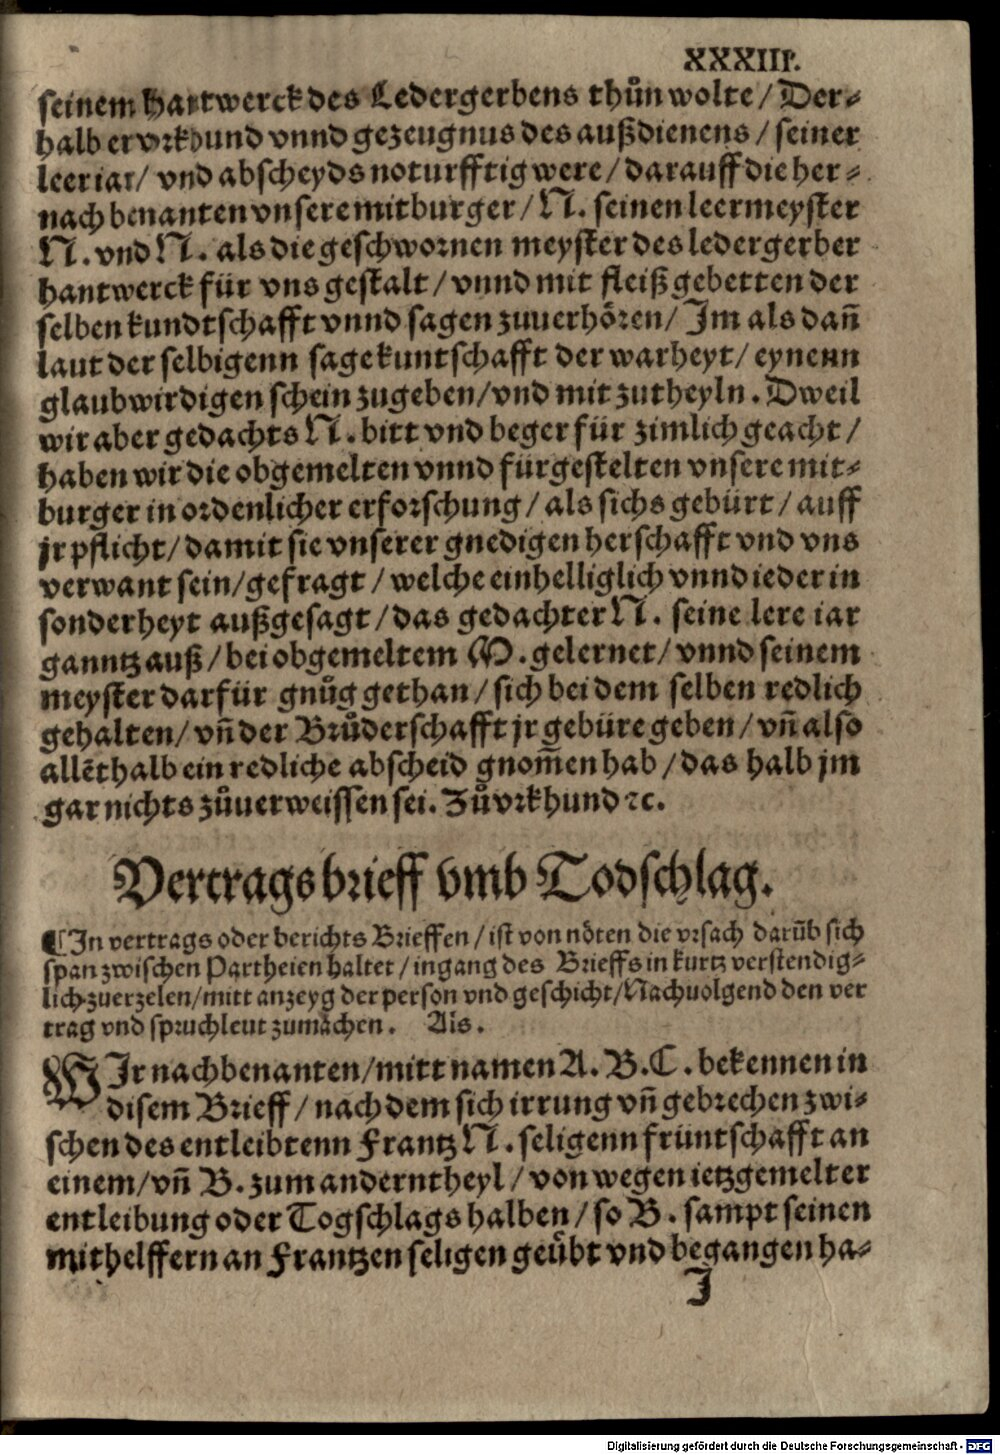 XXXIII.
seinem hantwerck des Ledergerbens thůn wolte / Der⸗
halb er vrkhund vnnd gezeugnus des außdienens / seiner
leer iar / vnd abscheyds noturfftig were / darauff die her⸗
nach benanten vnsere mitburger / N. seinen leermeyster
N. vnd N. als die geschwornen meyster des ledergerber
hantwerck für vns gestalt / vnnd mit fleiß gebetten der
selben kundtschafft vnnd sagen zuuerhören / Im als dañ
laut der selbigenn sage kuntschafft der warheyt / eynenn
glaubwirdigen schein zugeben / vnd mit zutheyln. Dweil
wir aber gedachts N. bitt vnd beger für zimlich geacht /
haben wir die obgemelten vnnd fürgestelten vnsere mit⸗
burger in ordenlicher erforschung / als sichs gebürt / auff
jr pflicht / damit sie vnserer gnedigen herschafft vnd vns
verwant sein / gefragt / welche einhelliglich vnnd ieder in
sonderheyt außgesagt / das gedachter N. seine lere iar
ganntz auß / bei obgemeltem M. gelernet / vnnd seinem
meyster darfür gnůg gethan / sich bei dem selben redlich
gehalten / vñ der Brůderschafft jr gebüre geben / vñ also
allēthalb ein redliche abscheid gnom̄en hab / das halb jm
gar nichts zůuerweissen sei. Zů vrkhund ꝛc.
Vertrags brieff vmb Todschlag.
¶ In vertrags oder berichts Brieffen / ist von nöten die vrsach darūb sich
span zwischen Partheien haltet / ingang des Brieffs in kurtz verstendig⸗
lich zuerzelen / mitt anzeyg der person vnd geschicht / Nachuolgend den ver
trag vnd spruchleut zumachen. Als.
WIr nachbenanten / mitt namen A. B. C. bekennen in
disem Brieff / nach dem sich irrung vñ gebrechen zwi⸗
schen des entleibtenn Frantz N. seligenn früntschafft an
einem / vñ B. zum anderntheyl / von wegen ietzgemelter
entleibung oder Togschlags halben / so B. sampt seinen
mithelffern an Frantzen seligen geübt vnd begangen ha⸗
J
Digitalisierung gefördert durch die Deutsche Forschungsgemeinschaft - DFG